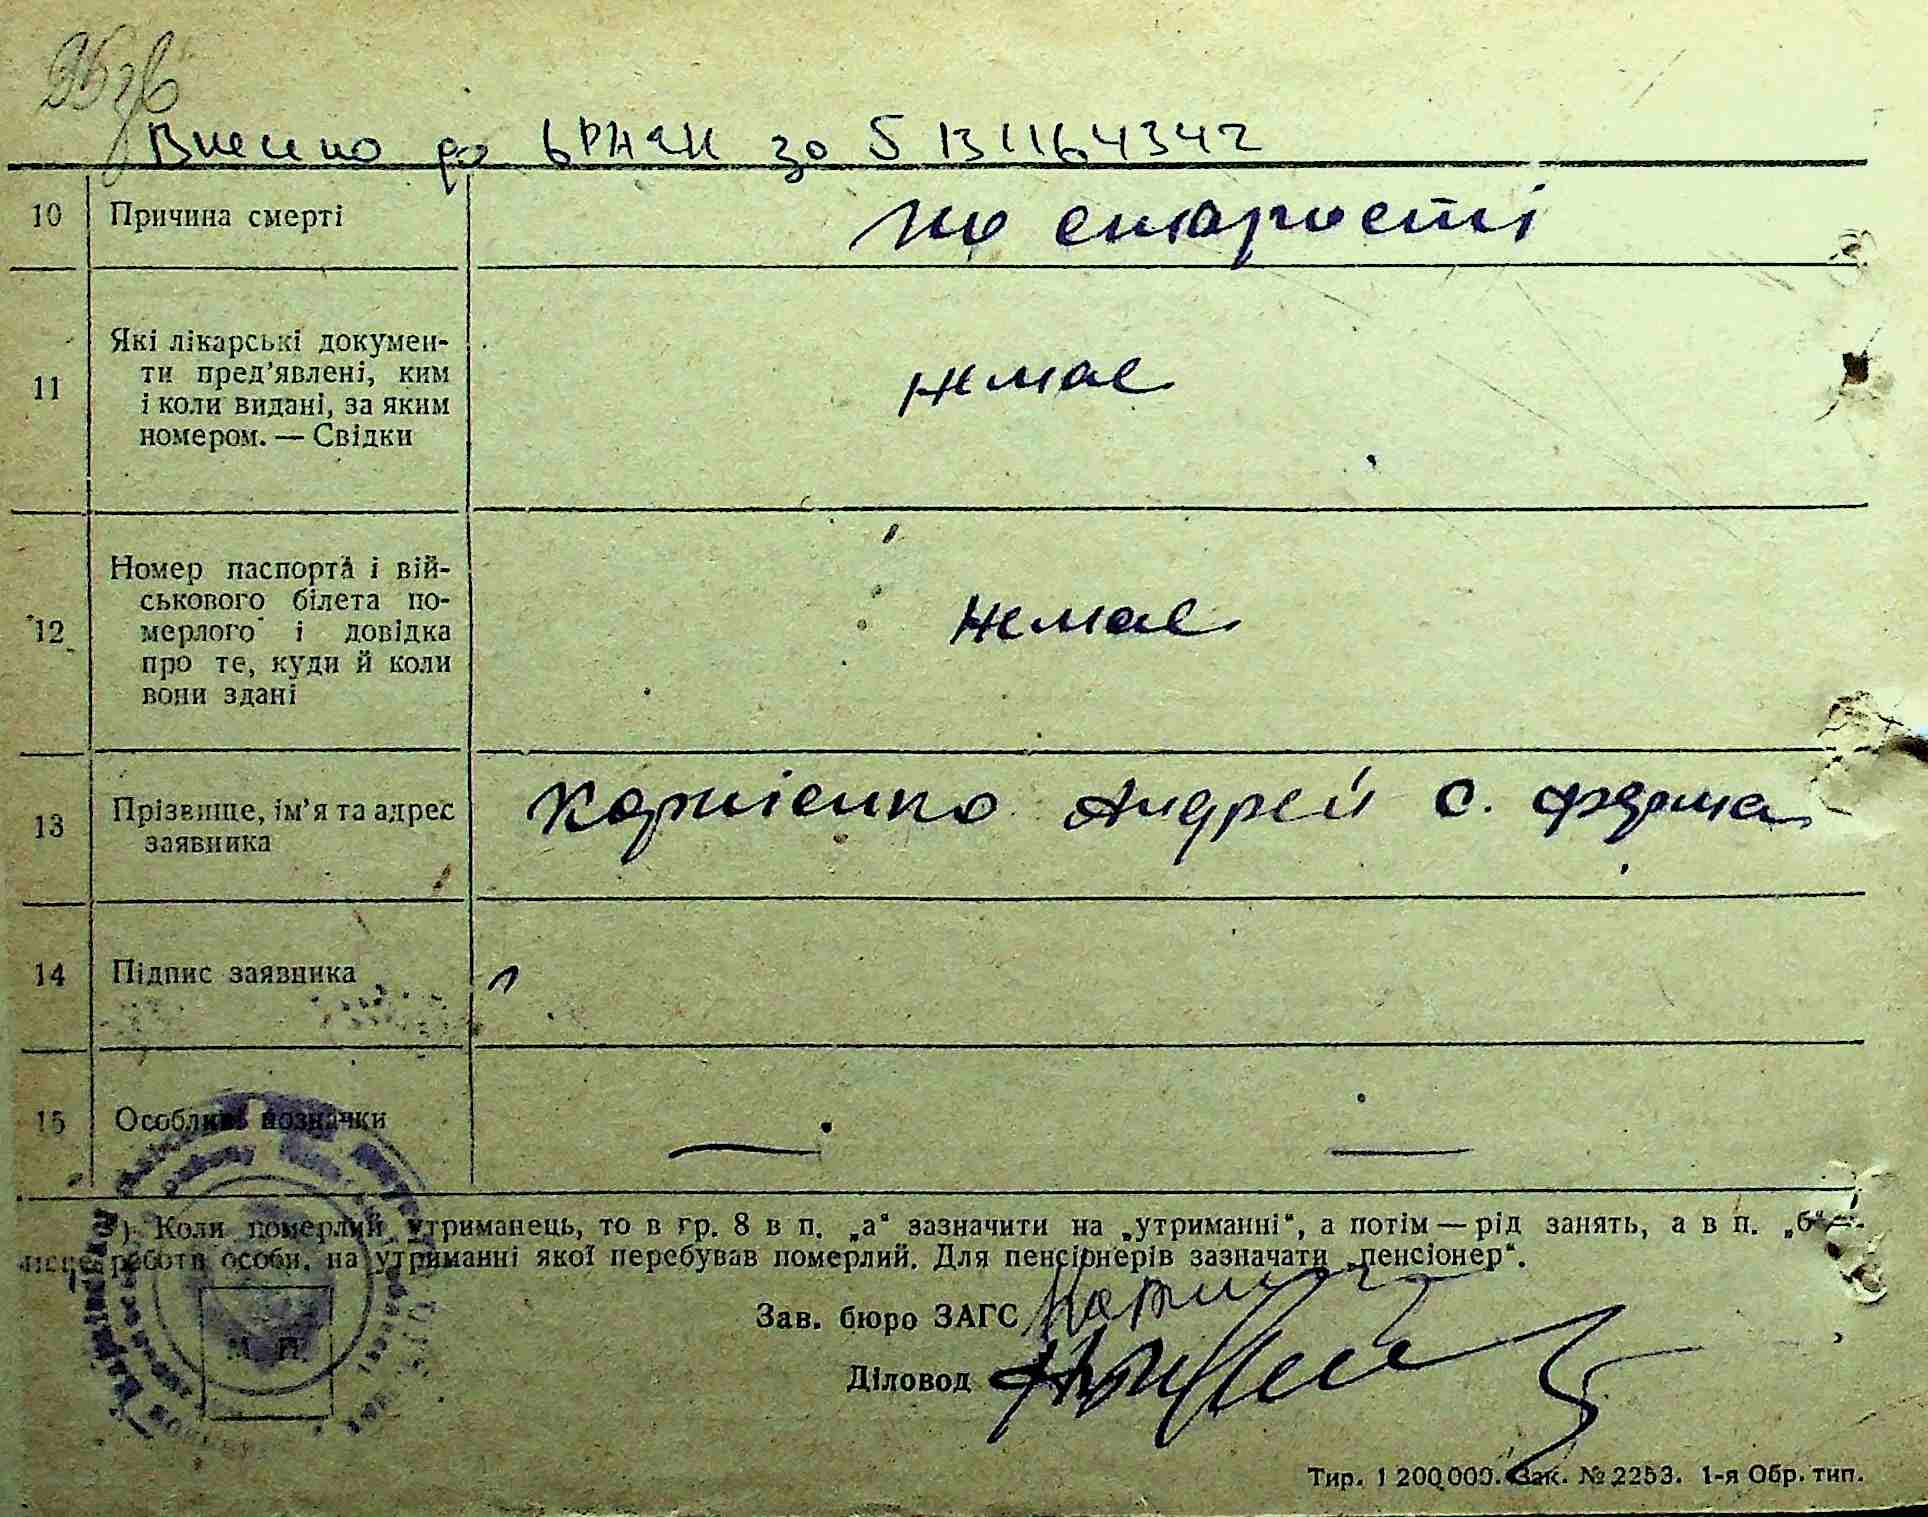 Внесено до
10 Причина смерті по старості
11 Які лікарські докумен-
ти пред'явлені, ким
і коли видані, за яким
номером. — Свідки
немає
12 Номер паспорта і вій-
ськового білета по-
мерлого і довідка
про те, куди й коли
вони здані
немає
13 Прізвище, ім'я та адрес
заявника
Корнієнко Андрей с.
14 Підпис заявника
15 Особливі позначки
— —
Коли померлий утриманець, то в гр. 8 в п. „а“ зазначити на „утриманні“, а потім — рід занять, а в п. „б“ —
місце роботи особи, на утриманні якої перебував померлий. Для пенсіонерів зазначати „пенсіонер“.
Зав. бюро ЗАГС
Діловод
М. П.
Тир. 1 200 000. Зак. № 2253. 1-я Обр. тип.